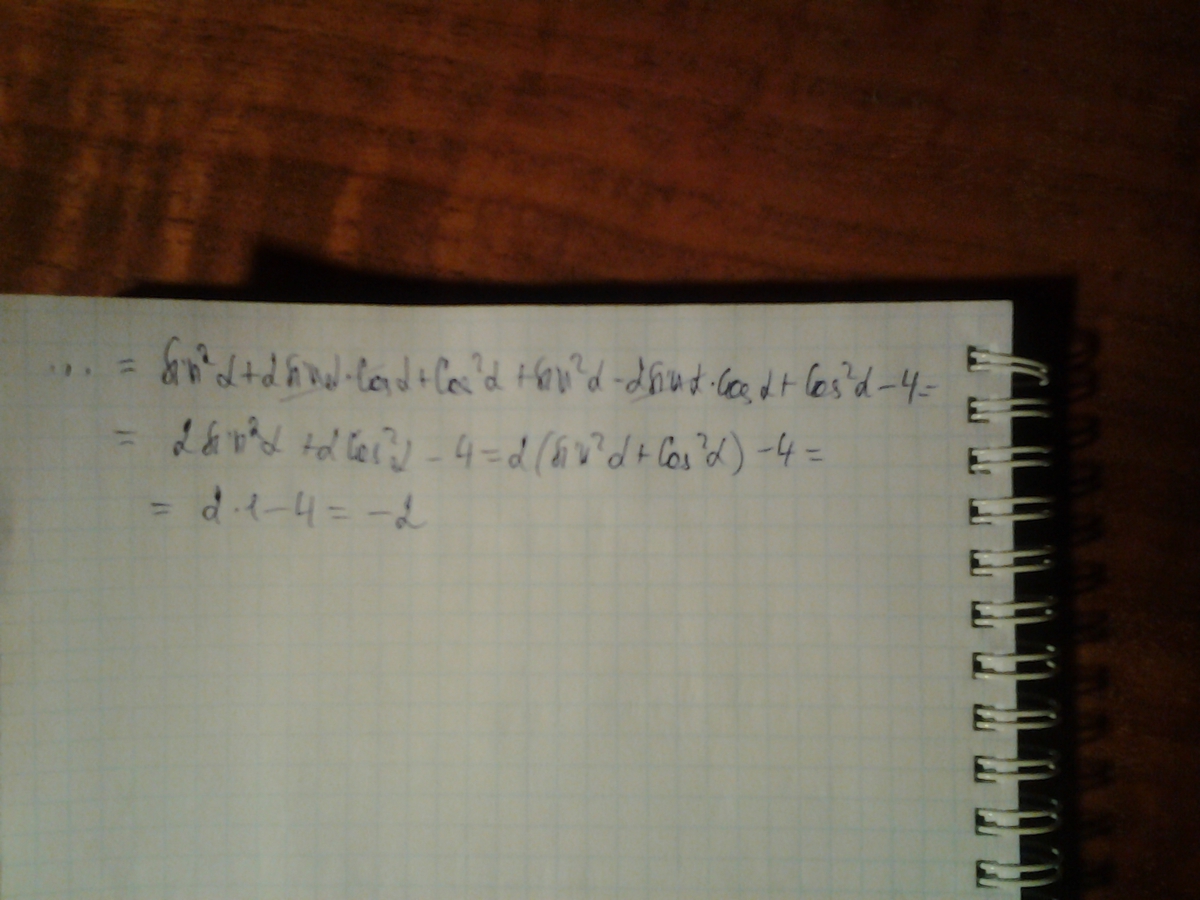 ... = sin²α+2sinα·cosα+cos²α+sin²α-2sinα·cosα+cos²α-4=
= 2sin²α+2cos²α-4=2(sin²α+cos²α)-4=
= 2·1-4=-2